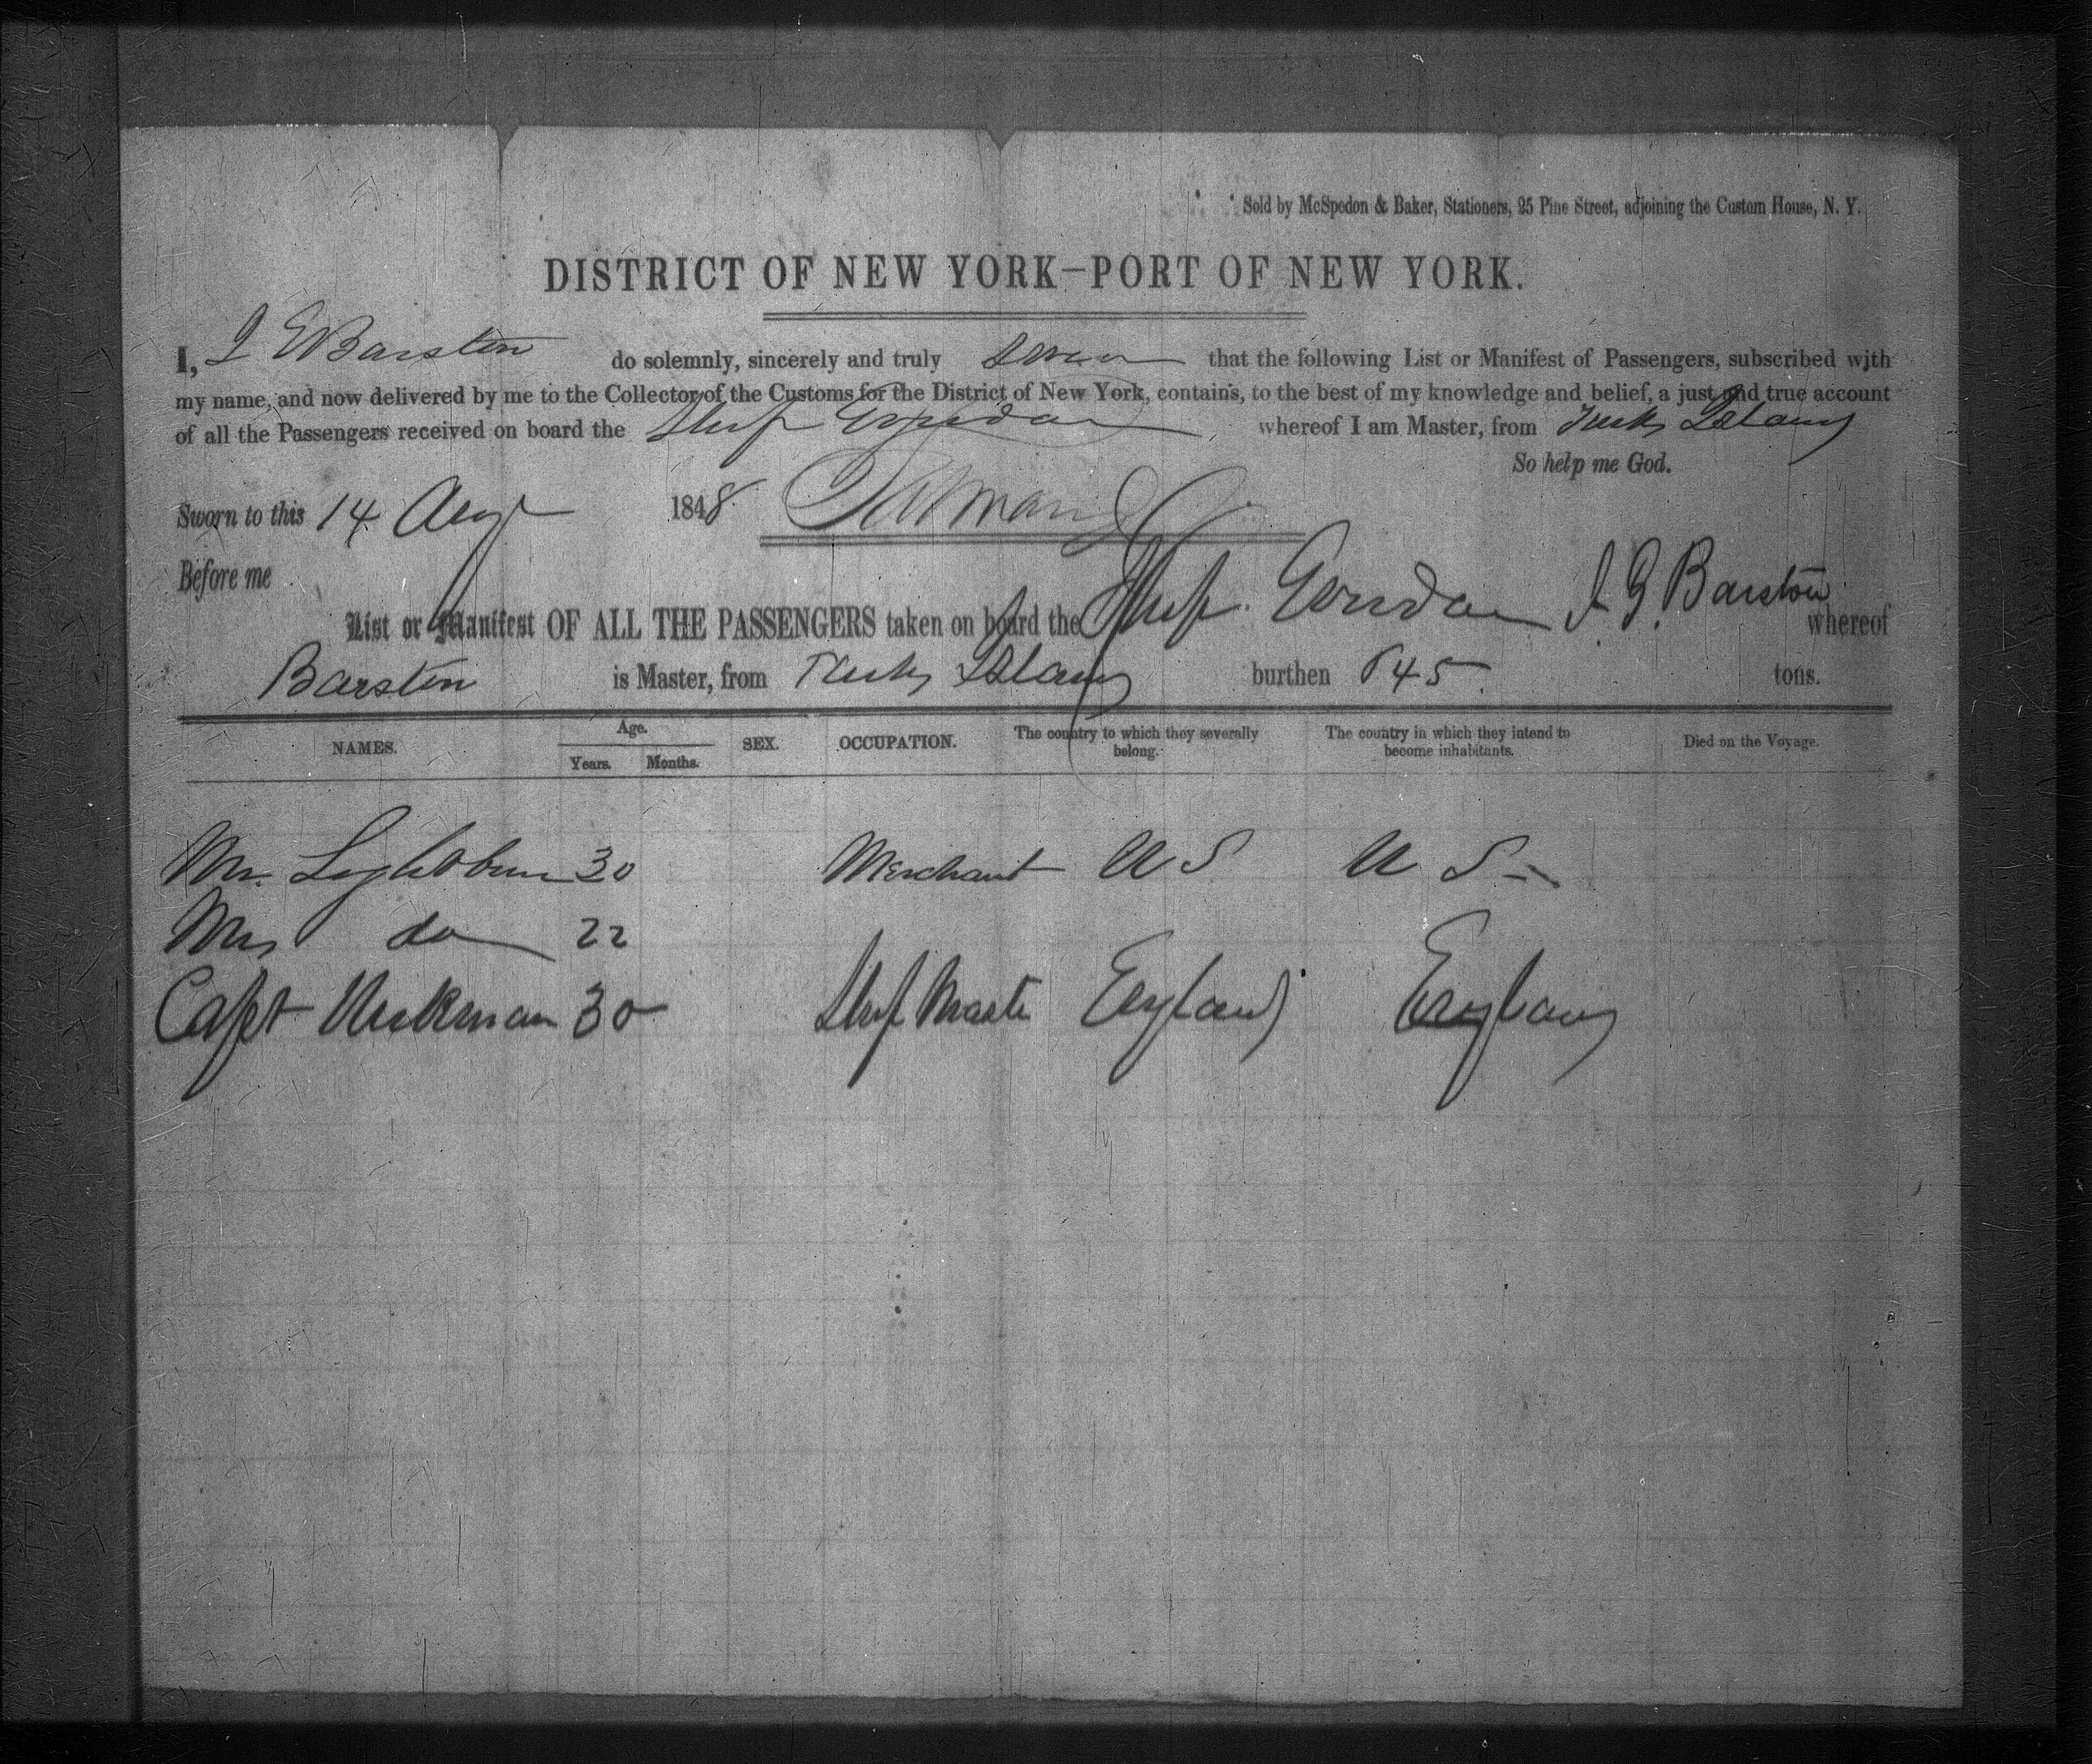 Sold by McSpedon & Baker, Stationers, 25 Pine Street, adjoining the Custom House, N. Y.
DISTRICT OF NEW YORK—PORT OF NEW YORK.
I, I G Barstow do solemnly, sincerely and truly swear that the following List or Manifest of Passengers, subscribed with
my name, and now delivered by me to the Collector of the Customs for the District of New York, contains, to the best of my knowledge and belief, a just and true account
of all the Passengers received on board the Ship whereof I am Master, from Turks Island
So help me God.
Sworn to this 14 Augt 1848
Before me
List or Manifest OF ALL THE PASSENGERS taken on board the Ship I. G. Barstow whereof
Barstow is Master, from Turks Island burthen 645 tons.
NAMES. Age. SEX. OCCUPATION. The country to which they severally belong. The country in which they intend to become inhabitants. Died on the Voyage.
Years. Months.
Mr. Lightbourn 30 Merchant U S U S
Mrs do 22
Capt 30 Ship Master England England